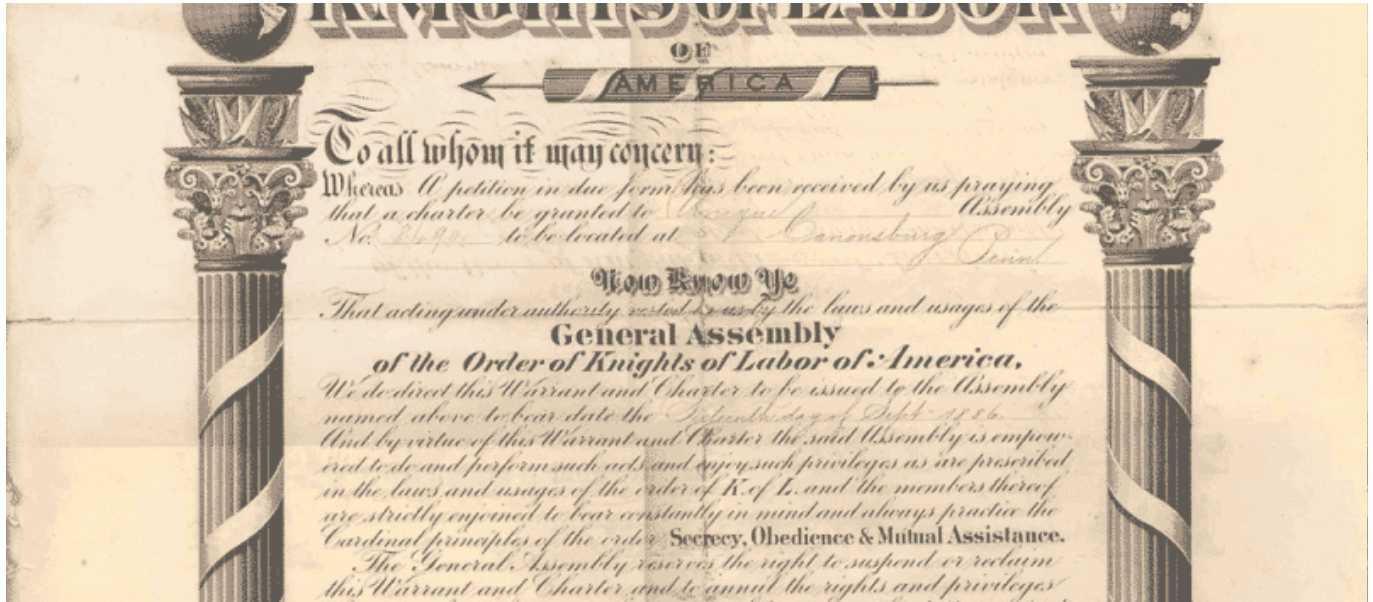 KNIGHTS OF LABOR
OF
AMERICA
To all whom it may concern:
Whereas A petition in due form has been received by us praying
that a charter be granted to Unique Assembly
No. to be located at Canonsburg
Penn.
Now Know Ye
That acting under authority vested in us by the laws and usages of the
General Assembly
of the Order of Knights of Labor of America,
We do direct this Warrant and Charter to be issued to the Assembly
named above to bear date the day of Sept 1886
And by virtue of this Warrant and Charter the said Assembly is empow-
ered to do and perform such acts and enjoy such privileges as are prescribed
in the laws and usages of the order of K. of L. and the members thereof
are strictly enjoined to bear constantly in mind and always practice the
Cardinal principles of the order Secrecy, Obedience & Mutual Assistance.
The General Assembly reserves the right to suspend or reclaim
this Warrant and Charter and to annul the rights and privileges